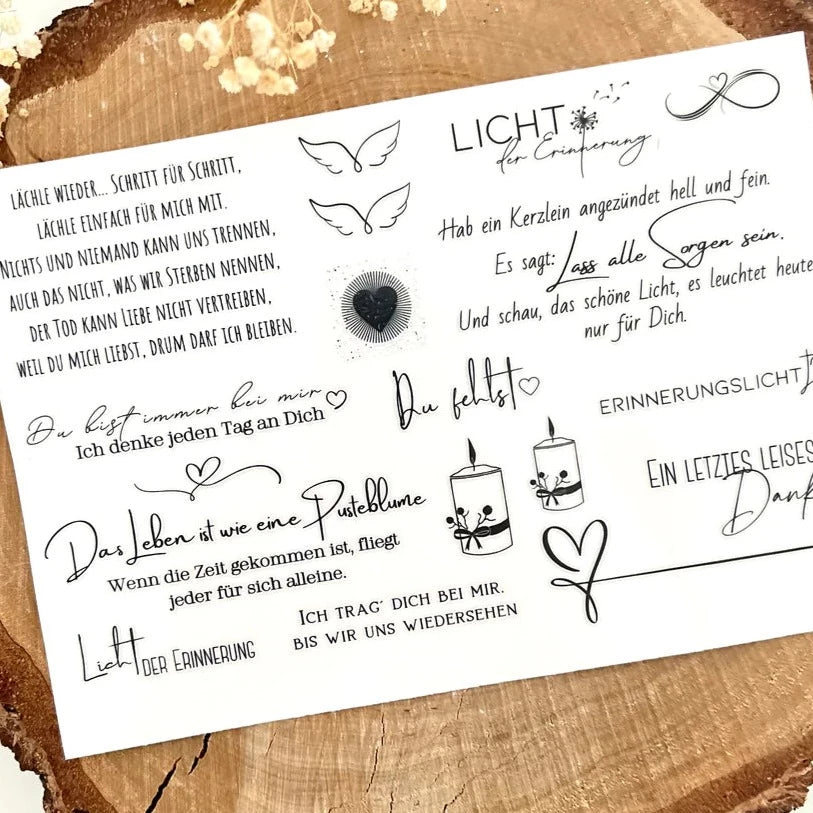 LÄCHLE WIEDER... SCHRITT FÜR SCHRITT,
LÄCHLE EINFACH FÜR MICH MIT.
NICHTS UND NIEMAND KANN UNS TRENNEN,
AUCH DAS NICHT, WAS WIR STERBEN NENNEN,
DER TOD KANN LIEBE NICHT VERTREIBEN,
WEIL DU MICH LIEBST, DRUM DARF ICH BLEIBEN.
LICHT
der Erinnerung
Hab ein Kerzlein angezündet hell und fein.
Es sagt: Lass alle Sorgen sein.
Und schau, das schöne Licht, es leuchtet heute
nur für Dich.
Du bist immer bei mir
Ich denke jeden Tag an Dich
Du fehlst
ERINNERUNGSLICHT
EIN LETZTES LEISES
Das Leben ist wie eine Pusteblume
Wenn die Zeit gekommen ist, fliegt
jeder für sich alleine.
Licht DER ERINNERUNG
ICH TRAG´ DICH BEI MIR.
BIS WIR UNS WIEDERSEHEN